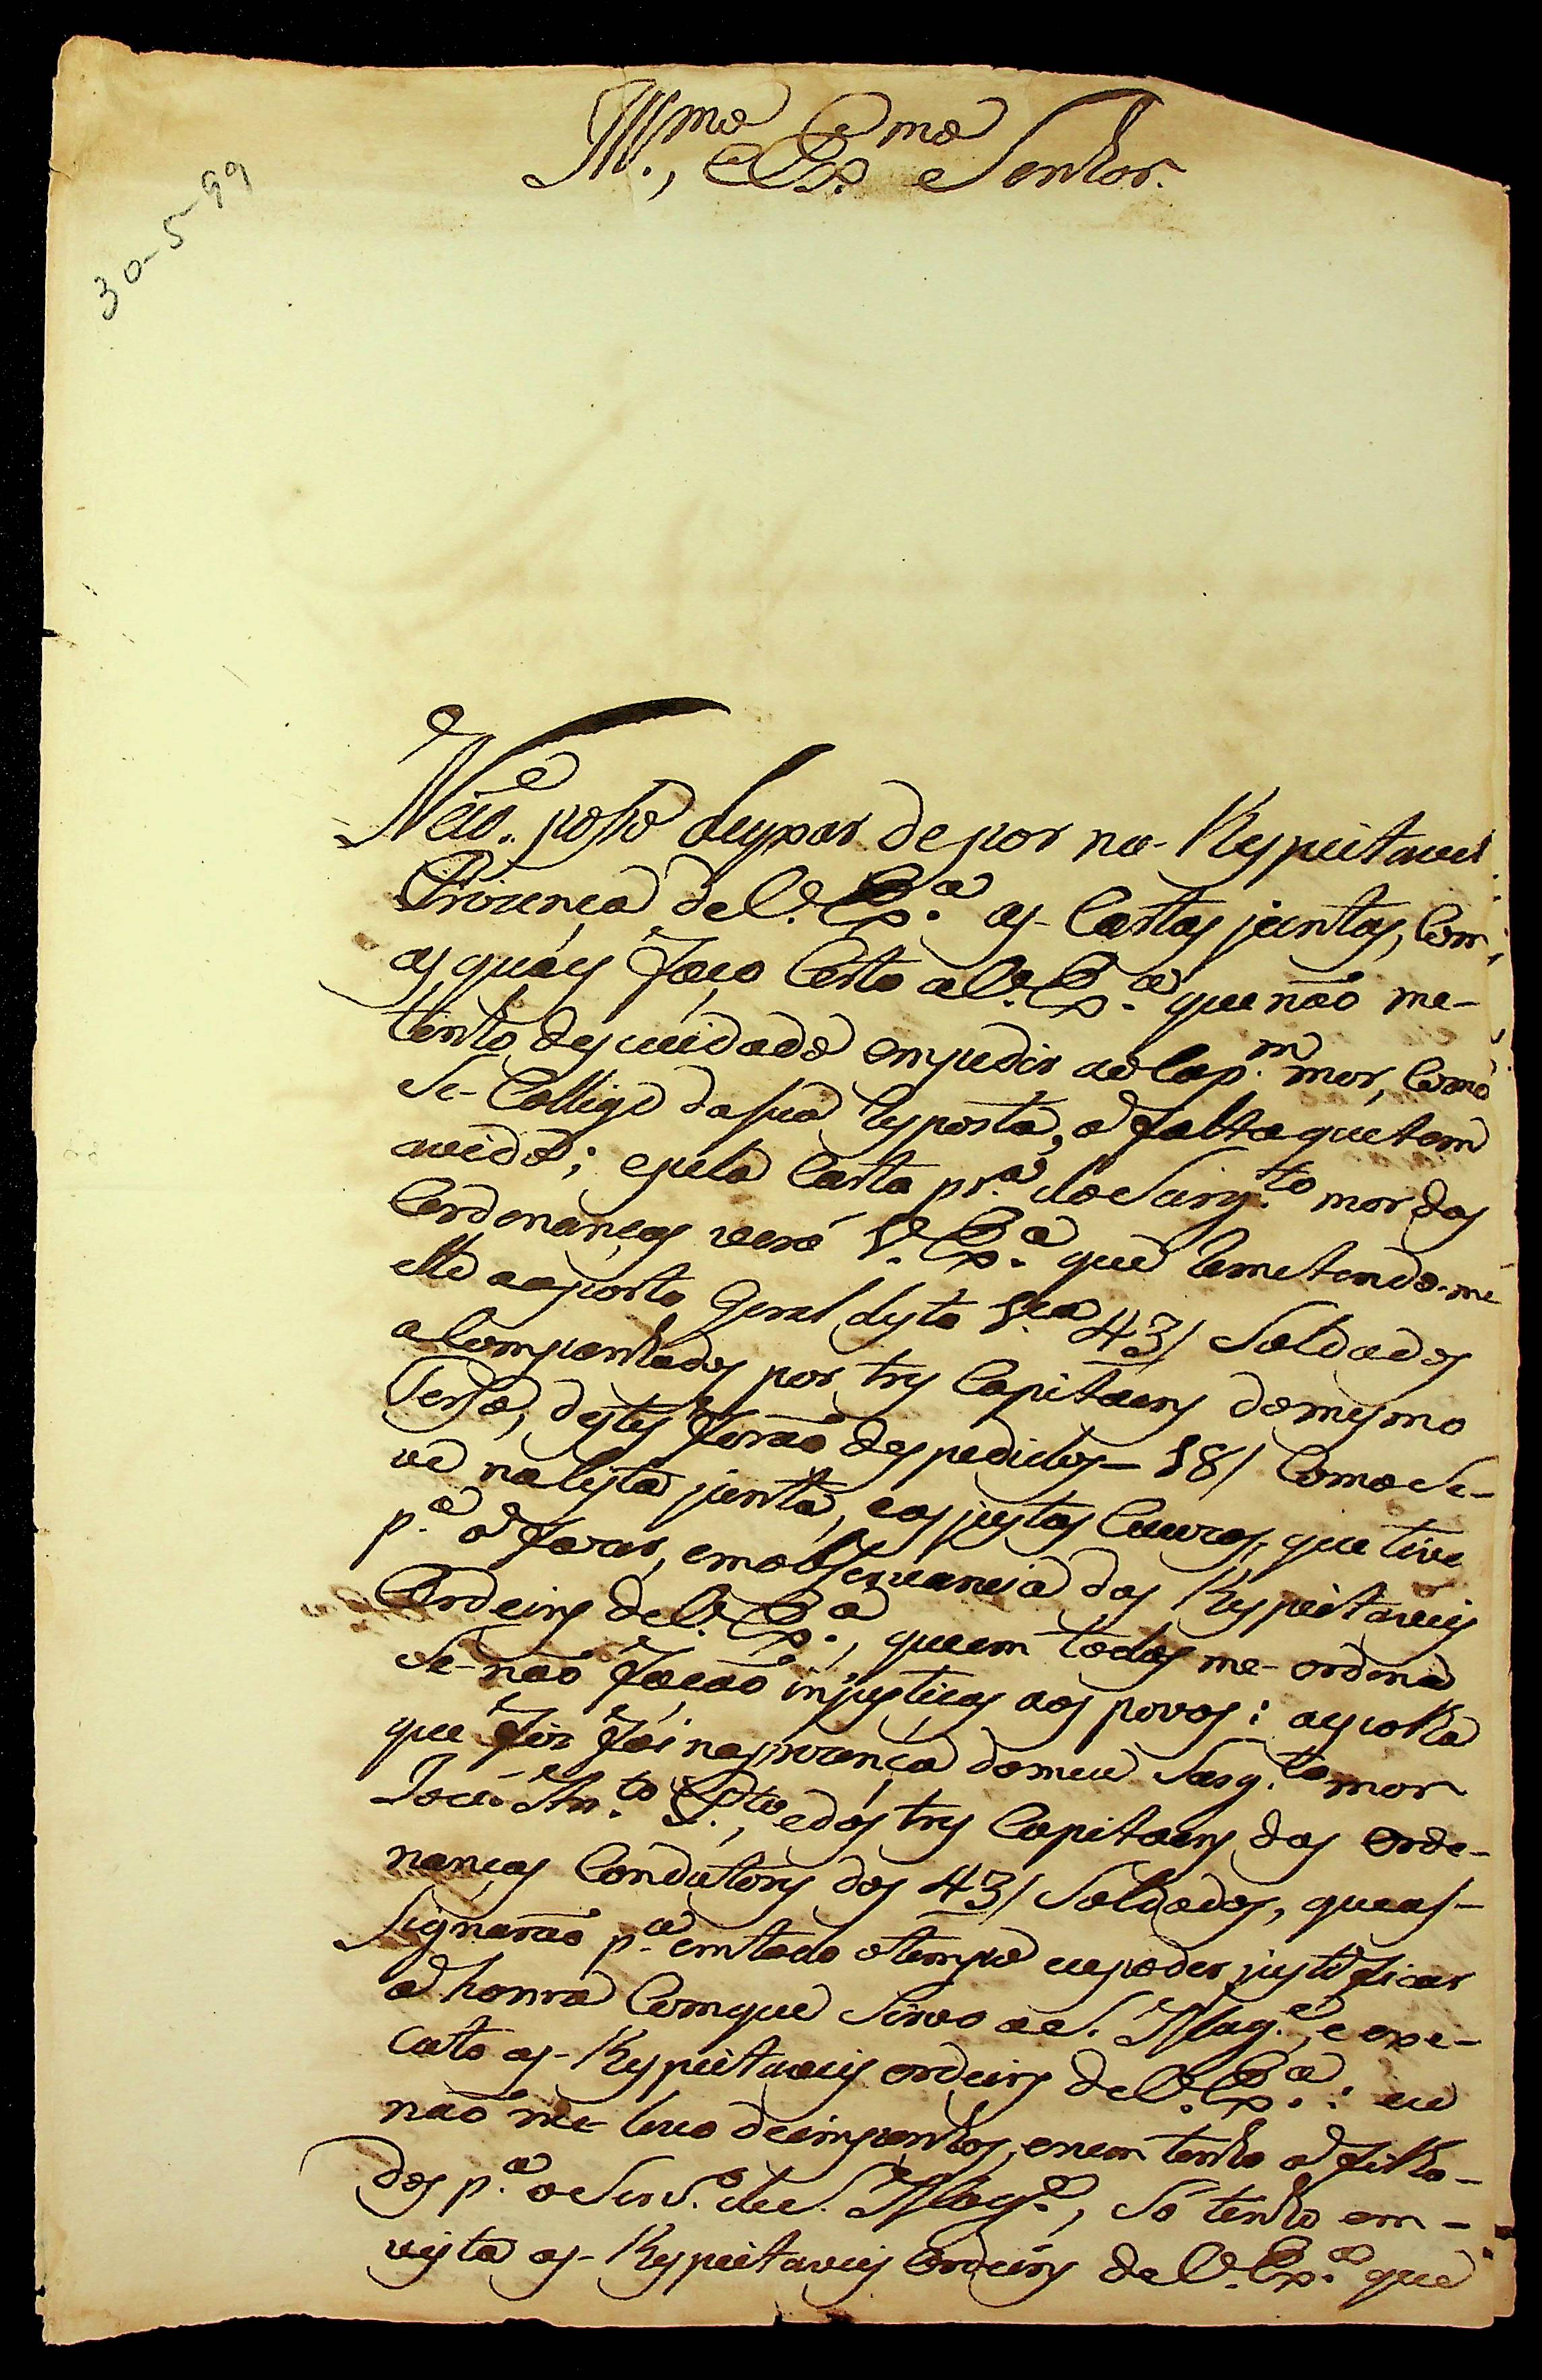 Ill.mo, e Ex.mo Senhor.
30-5-99
Não posso deyxar de por na Respeitavel
Prezença de V. Ex.a as Cartas juntas, Com
as quáes Faço Certo a V. Ex.a que não me-
tenho descuidado em pedir ao Cap.m mor, Como
Se-Collige da sua Resposta, a falta que tem
avido; e pela Carta pr.a do Sarg.to mor das
Ordenanças verá V. Ex.a que Remetendo-me
elle ao porto Geral desta V.a 43/ Soldados
aCompanhados por tres Capitaens do mesmo
Terso, destes Forão despedidos - 18/ Como Se-
vê na lista junta, e as justas Cauzas, que tive
p.a o Fazer, em observancia das Respeitaveis
Ordeins de V. Ex.a, que em todas me-ordena
Se-não Fação injustiças aos povos: a escolha
que Fiz Foi na prezença do meu Sarg.to mor
Jozé An.to , e dos tres Capitaens das Orde-
nanças Condutores dos 43/ Soldados, que as-
signarão p.a em todo o tempo eu poder justificar
a honra Com que Sirvo a S. Mag.e, e exe-
cuto as-Respeitaveis ordeins de V. Ex.a: eu
não me-levo de impenhos, e nem tenho afilha-
dos p.a o Serv.o de S. Mag.e, Só tenho em-
vista as-Respeitaveis Ordeins de V. Ex.a que